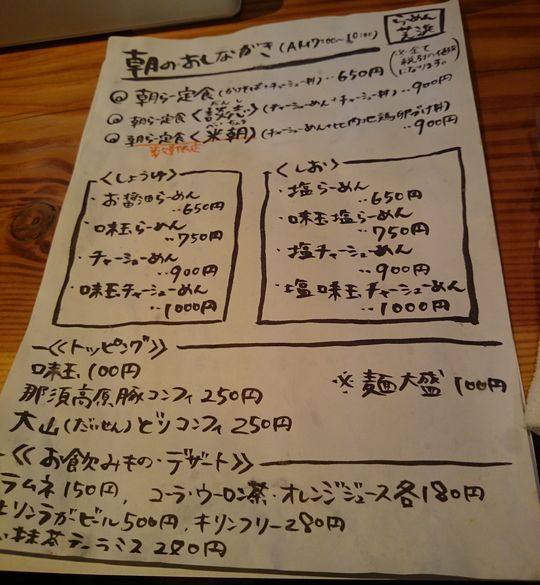 らーめん
芝浜
朝のおしながき(AM7:00〜10:00)
(※全て
税別の価格
になります。)
朝らー定食(かけそば+チャーシュー丼)‥650円
朝らー定食〈談志〉(チャーシューめん+チャーシュー丼)‥900円
朝らー定食〈米朝〉(チャーシューめん+比内地鶏卵づけ丼)
‥900円
〈しょうゆ〉
・お醤油らーめん
‥650円
・味玉らーめん
‥750円
・チャーシューめん
‥900円
・味玉チャーシューめん
‥1000円
〈しお〉
・塩らーめん
‥650円
・味玉塩らーめん
‥750円
・塩チャーシューめん
‥900円
・塩味玉チャーシューめん
‥1000円
《トッピング》
味玉100円
那須高原豚コンフィ250円
大山(だいせん)どりコンフィ250円
※麺大盛100円
《お飲みもの・デザート》
ラムネ150円、コーラ・ウーロン茶・オレンジジュース各180円
キリンラガービール500円、キリンフリー280円
抹茶ティラミス280円